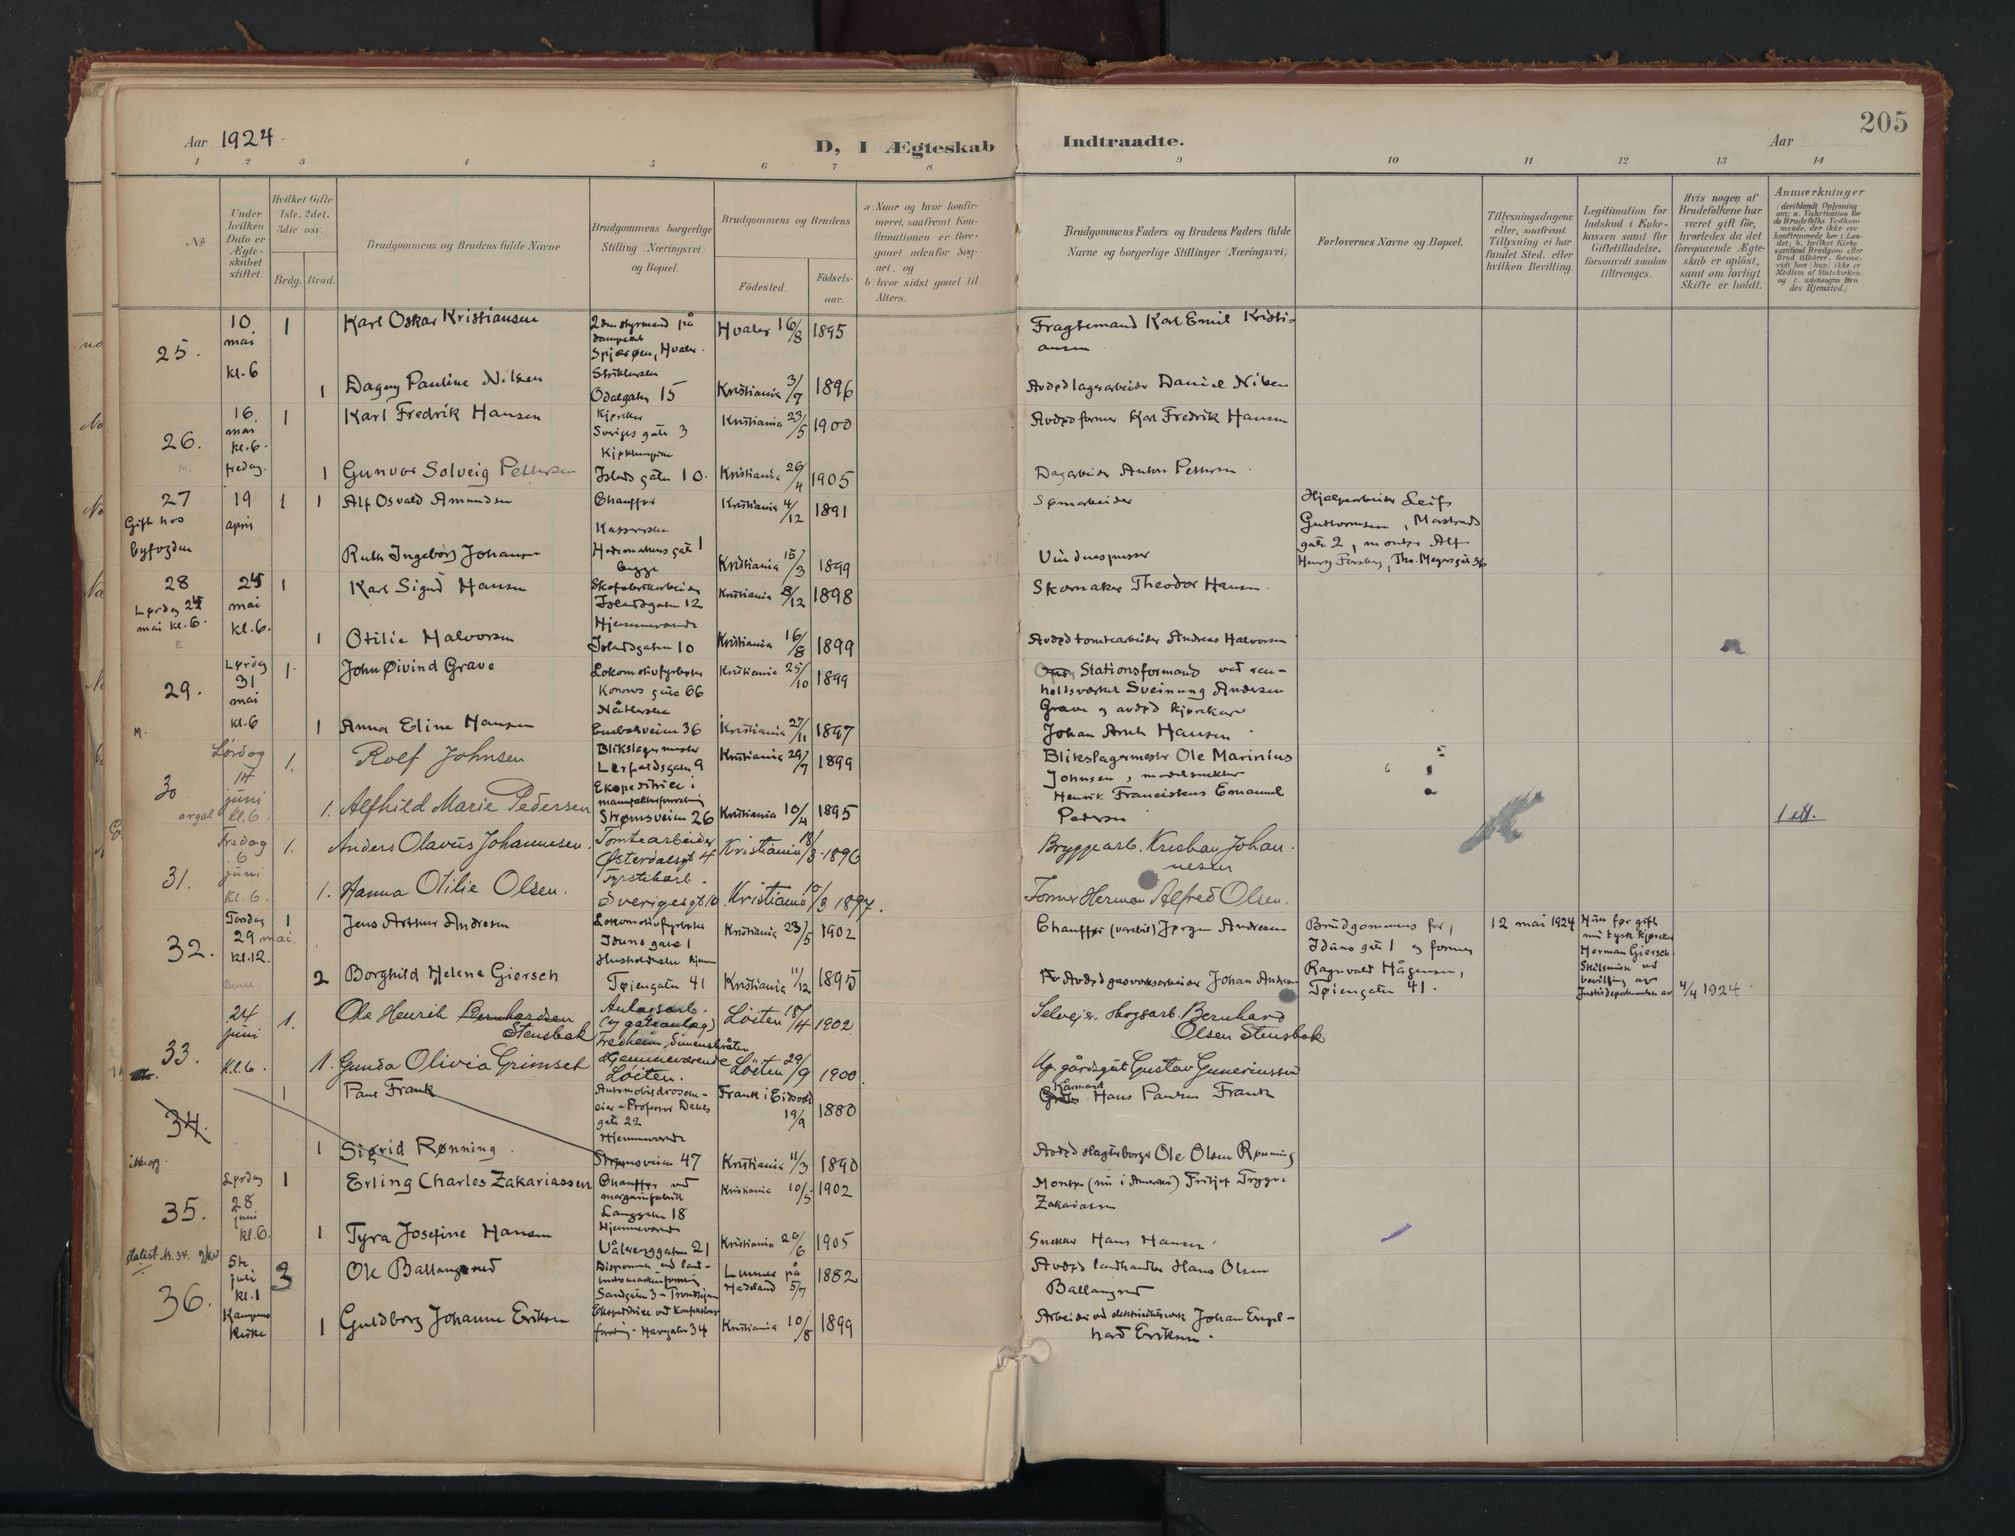 205
Aar 1924.
D, 1 Ægteskab Indtraadte.
Aar
1 2 3 4 5 6 7 8 9 10 11 12 13 14
No
Under hvilken Dato er Ægteskabet stiftet.
Hvilket Gifte 1ste. 2det. 3die osv.
Brdg. Brud.
Brudgommens og Brudens fulde Navne
Brudgommens borgerlige Stilling (Næringsvei) og Bopæl.
Brudgommens og Brudens
Fødested.
Fødselsaar.
a Naar og hvor konfirmeret, saafremt Konfirmationen er foregaaet udenfor Sognet, og
b hvor sidst gaaet til Alters.
Brudgommens Faders og Brudens Faders fulde Navne og borgerlige Stillinger (Næringsvei)
Forlovernes Navne og Bopæl.
Tillysningsdagene eller, saafremt Tillysning ei har fundet Sted, efter hvilken Bevilling.
Legitimation for Indskud i Enkekassen samt for Giftetilladelse, forsaavidt saadan tiltrænges.
Hvis nogen af Brudefolkene har været gift før, hvorledes da det foregaaende Ægteskab er opløst, samt om lovligt Skifte er holdt.
Anmærkninger
25.
10. mai kl. 6
1
Karl Oskar Kristiansen
2den styrmand på
Spjærøen, Hvaler.
Hvaler 16/8 1895
Fragtemand Karl Emil Kristiansen
1
Dagny Pauline Nilsen
Odalgaten 15
Kristiania 3/7 1896
Avdød lagerarbeider Daniel Nilsen
26.
16. mai kl. 6. fredag.
1
Karl Fredrik Hansen
Kjøresvend
Sveriges gate 3
Kristiania 23/5 1900
Avdød former Karl Fredrik Hansen
1
Gunvor Solveig Pettersen
Islands gaten 10.
Kristiania 26/4 1905
Dagarbeider Anton Pettersen
27
Gift hos byfogden
19 april
1 1
Alf Osvald Amundsen
Chauffør
Kristiania 4/12 1891
Sømarbeider
Hjælpearbeider Leif Guttormsen, Marstrands gate 2, montør Alf Henry Forsberg, Th. Meyersgate 36
Ruth Ingeborg Johansen
Kasererske
begge
Kristiania 15/3 1899
Vinduespusser
28
Lørdag 24 mai kl. 6.
24 mai kl. 6.
1
Karl Sigurd Hansen
Skofabrikarbeider
Islandsgaten 12
Kristiania 8/12 1898
Skomaker Theodor Hansen
1
Otilie Halvorsen
Hjemmeværende
Islandsgaten 10
Kristiania 16/8 1899
Avdød tomtearbeider Andreas Halvorsen
29.
M.
Lørdag 31 mai kl. 6
1
John Øivind Grave
Lokomotivfyrbøter
Konows gate 66
Kristiania 25/10 1899
Stationsformand ved renholdsværket Sveinung Andersen Grave og avdød kjørekar
1
Anna Eline Hansen
Enebakveien 36
Kristiania 27/11 1897
Johan Arnt Hansen
30
orgel
Lørdag 14 juni kl. 6.
1.
Rolf Johnsen
Blikslagermester
Lerfaldsgaten 9
Kristiania 29/7 1899
Blikslagermester Ole Marinius Johnsen, modelsnekker
1.
Alfhild Marie Pedersen
Ekspeditrice i
manufakturforretning
Strømsveien 26
Kristiania 10/4 1895
Henrik Franciskus Emanuel Pedersen
31.
Fredag 6 juni Kl. 6.
1.
Anders Olavus Johannesen.
Tomtearbeider
Østerdalsgt 4
Kristiania 18/3 - 1896
Bryggearb. Kristian Johannesen
1.
Hanna Otilie Olsen.
Fyrstikarb.
Sverigesgt 10
Kristiania 10/3 1897.
Former Herman Alfred Olsen.
32.
Torsdag 29 mai. kl. 12.
1
Jens Arthur Andresen
Lokomotivfyrbøter
Iduns gate 1
Kristiania 23/5 1902
Chauffør (varebil) Jørgen Andresen
Brudgommens far, Iduns gate 1 og former Ragnvald Hågensen, Tøiengaten 41.
12 mai 1924
Hun før gift m. tysk kjøresvend Herman Giersch. Skilsmisse ved bevilling av Justisdepartementet av 4/4 1924
2
Borghild Helene Giersch
Husholderske hjemme
Tøiengaten 41
Kristiania 11/12 1895
Avdød gasverksarbeider Johan Andresen
33.
24 juni Kl. 6.
1.
Ole Henrik Bernhardsen Stensbak
Anlægsarb.
(og gateanlæg)
Løiten 18/4 1902
Selveier, skogsarb. Bernhard Olsen Stensbak
1.
Gunda Olivia Grimset
Hjemmeværende
Løiten.
Løiten 29/9 1900.
Gustav Guneriussen
34.
1
Paul Frank
Automobildroscheeier - Professor Dahls gate 22
Frank i Eidsvold 19/9 1880
Hans Paulsen Frank
1
Sigrid Rønning
Hjemmeværende
Strømsveien 47
Kristiania 11/3 1890
Avdød slagterborger Ole Olsen Rønning
35.
Lørdag 28 juni kl. 6.
1
Erling Charles Zakariassen
Chauffør ved
margarinfabrik
Langgaten 18
Kristiania 10/5 1902
Montør (nu i Amerika) Fritjof Trygve Zakariassen
1
Tyra Josefine Hansen
Hjemmeværende
Vålerenggaten 21
Kristiania 20/6 1905
Snekker Hans Hansen
36.
5te juli kl. 1 Kampens kirke
3
Ole Ballangrud
Disponent
Sandgaten 3 - Trondhjem
Lunner på Hadeland 5/7 1882
Avdød landhandler Hans Olsen Ballangrud
1
Guldborg Johanne Eriksen
Ekspeditrice ved Konfektionsforretning - Havgaten 34
Kristiania 10/8 1899
Arbeider ved elektricitetsverk Johan Engelhard Eriksen.